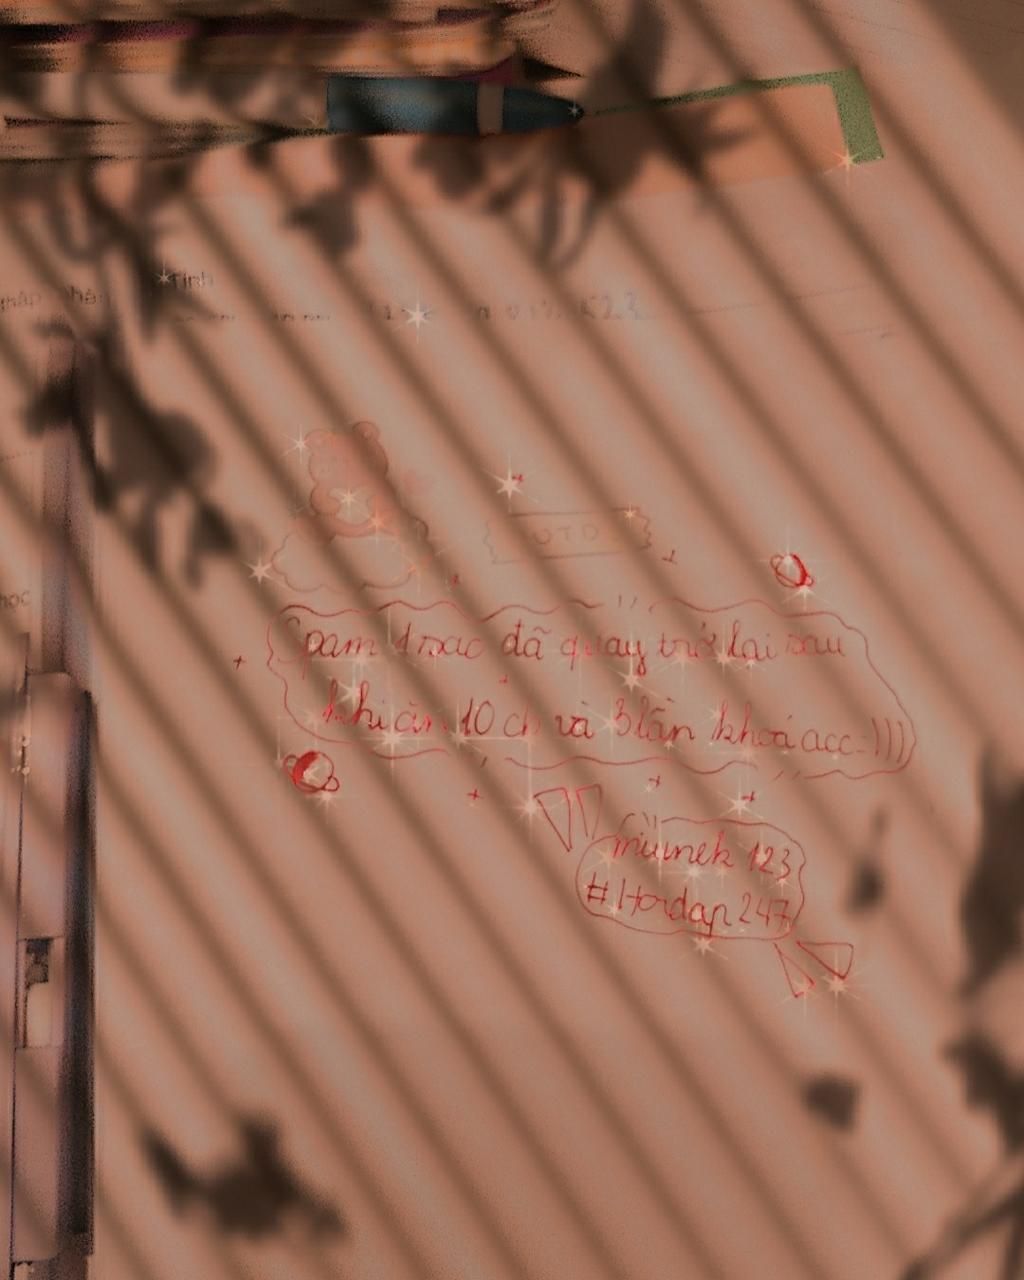 OTD
Spam 1 xác đã quay trở lại sau
khi ăn 10 ch và 3 lần khoá acc:)))
miinek 123
#Hordap247